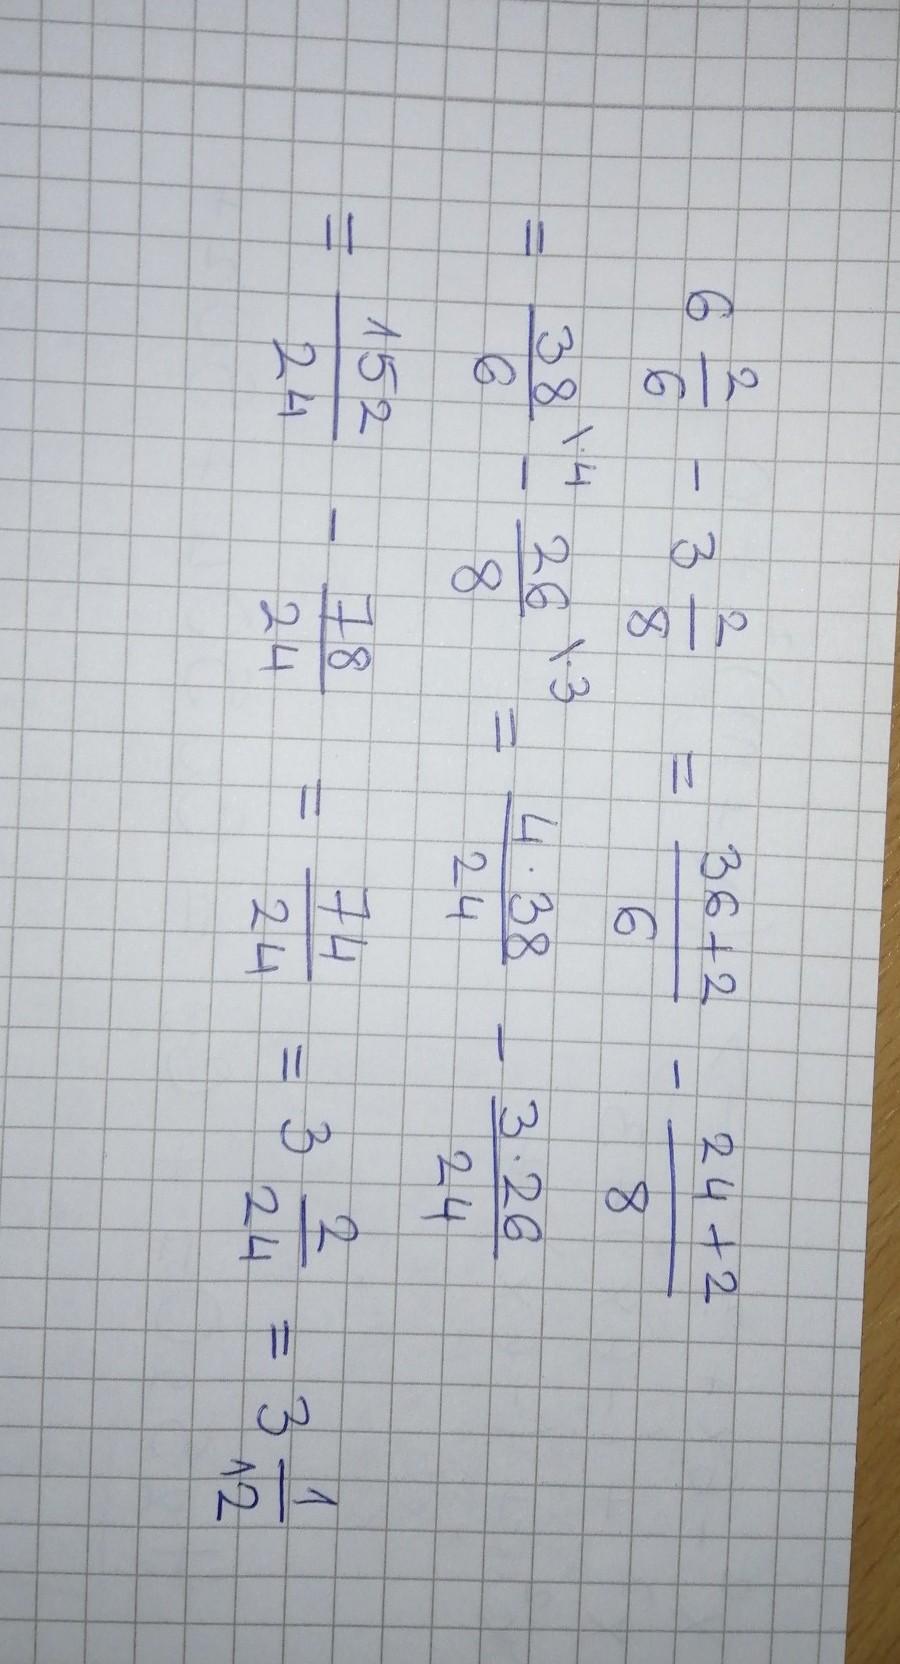 6 2/6 - 3 2/8 = (36+2)/6 - (24+2)/8
= 38/6 \·4 - 26/8 \·3 = (4·38)/24 - (3·26)/24
= 152/24 - 78/24 = 74/24 = 3 2/24 = 3 1/12